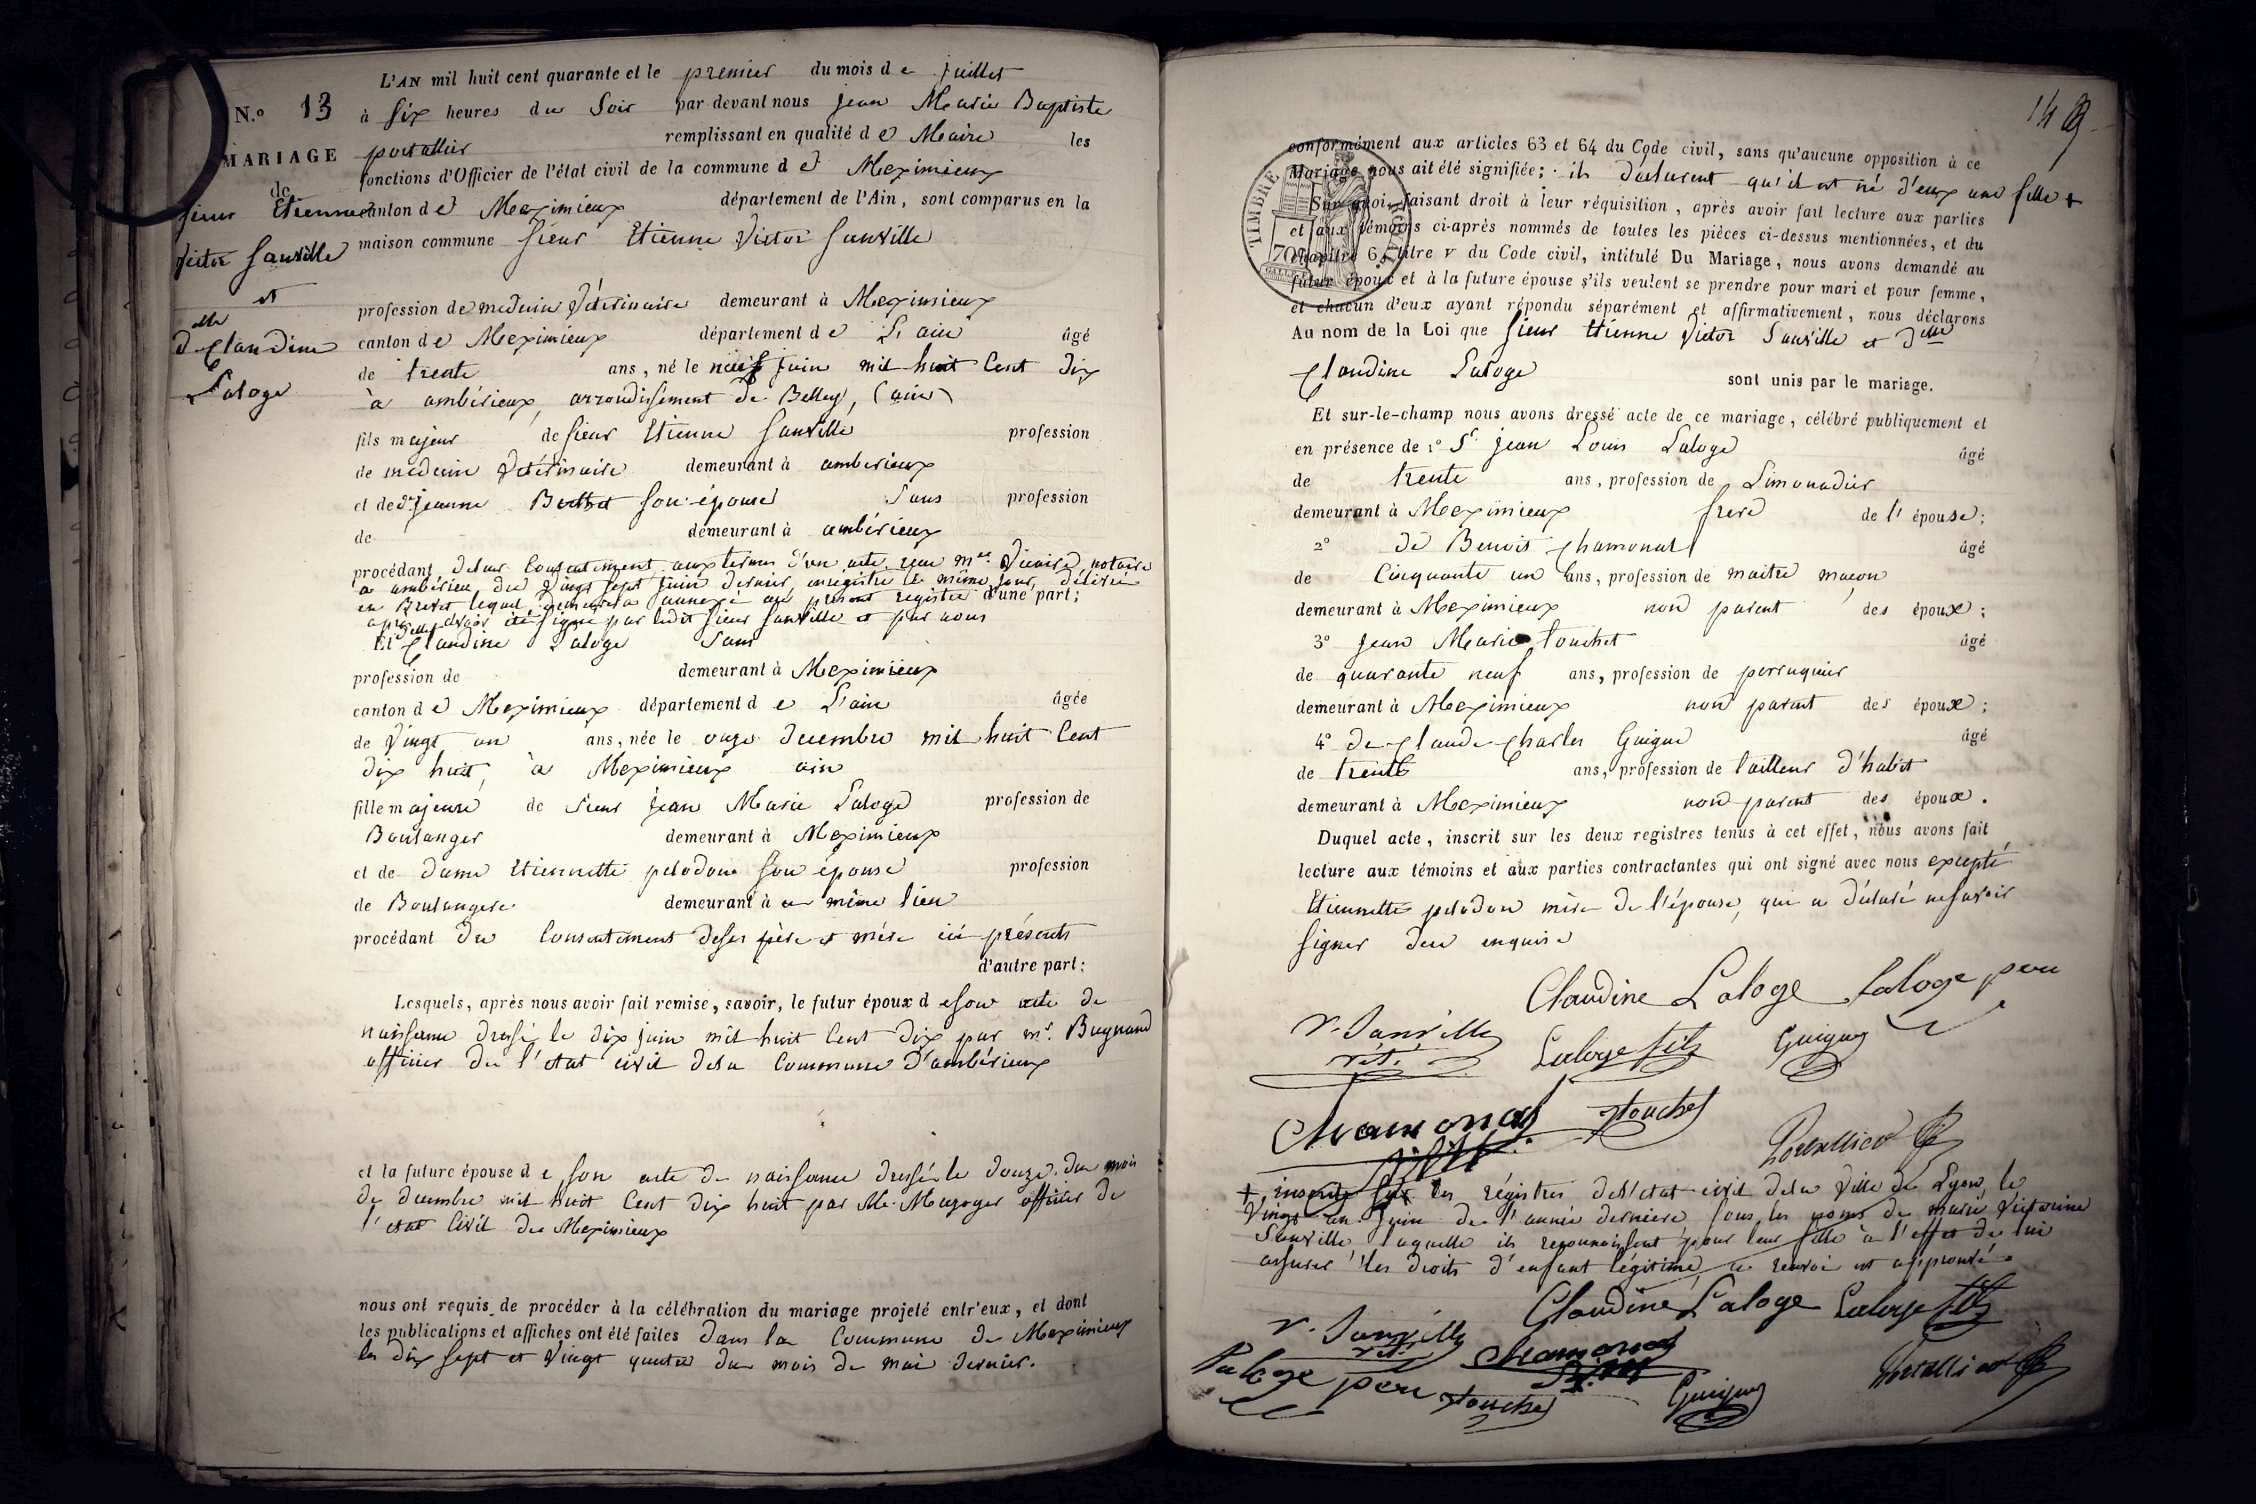 L'AN mil huit cent quarante et le premier du mois de Juillet
N.° 13 à Six heures du Soir par-devant nous Jean Marie Baptiste
portallier remplissant en qualité de Maire les
MARIAGE
fonctions d'Officier de l'état civil de la commune de Meximieux
de
sieur Etienne canton de Meximieux département de l'Ain, sont comparus en la
Victor Sanville maison commune Sieur Etienne Victor Sanville
et
profession de medecin Vétérinaire demeurant à Meximieux
dlle Claudine canton de Meximieux département de L'ain âgé
Laloge de trente ans, né le neuf Juin mil huit Cent Dix
à ambérieux, arrondissement de Belley, (ain)
fils majeur de Sieur Etienne Sanville profession
de médecin Vétérinaire demeurant à amberieux
et de de Jeanne Berthet son épouse Sans profession
de demeurant à ambérieux
procédant de leur consentement aux termes d'un acte reçu me notaire
à ambérieu du Vingt sept Juin dernier, enregistré le même jour, délivré
en Brevet lequel demeurera annexé au présent registre d'une part;
après avoir été signé par ledit sieur Sanville et par nous
Et delle Claudine Laloge Sans
profession de demeurant à Meximieux
canton de Meximieux département de L'ain âgée
de Vingt un ans, née le onze decembre mil huit Cent
dix huit, à Meximieux ain
fille majeure de sieur Jean Marie Laloge profession de
Boulanger demeurant à Meximieux
et de dame Etiennette pelodon son épouse profession
de Boulangere demeurant à au même lieu
procédant du Consentement de ses père et mère ici présents
d'autre part;
Lesquels, après nous avoir fait remise, savoir, le futur époux de son acte de
naissance dressé le dix juin mil huit Cent dix par mr. Bugnand
officier de l'état civil de la Commune d'ambérieux
et la future épouse de son acte de naissance dressé le douze du mois
de decembre mil huit Cent dix huit par Mr. officier de
l'état Civil de Meximieux
nous ont requis de procéder à la célébration du mariage projeté entr'eux, et dont
les publications et affiches ont été faites dans la Commune de Meximieux
les dix sept et Vingt quatre du mois de mai dernier.
conformément aux articles 63 et 64 du Code civil, sans qu'aucune opposition à ce
Mariage nous ait été signifiée; ils déclarent qu'il est né d'eux une fille +
Sur quoi, faisant droit à leur réquisition, après avoir fait lecture aux parties
et aux témoins ci-après nommés de toutes les pièces ci-dessus mentionnées, et du
chapitre 6, titre v du Code civil, intitulé Du Mariage, nous avons demandé au
futur époux et à la future épouse s'ils veulent se prendre pour mari et pour femme,
et chacun d'eux ayant répondu séparément et affirmativement, nous déclarons
TIMBRE ROYAL
70
Au nom de la Loi que Sieur Etienne Victor Sanville et dlle
Claudine Laloge sont unis par le mariage.
Et sur-le-champ nous avons dressé acte de ce mariage, célébré publiquement et
en présence de 1° Sr. Jean Louis Laloge âgé
de trente ans, profession de Limonadier
demeurant à Meximieux frere de l'épouse;
2° de Benoit Chamonal âgé
de Cinquante un ans, profession de maitre maçon
demeurant à Meximieux non parent des époux;
3° Jean Marie touchet âgé
de quarante neuf ans, profession de perruquier
demeurant à Meximieux non parent des époux;
4° de Claude Charles Guigue âgé
de trente ans, profession de tailleur d'habit
demeurant à Meximieux non parent des époux.
Duquel acte, inscrit sur les deux registres tenus à cet effet, nous avons fait
lecture aux témoins et aux parties contractantes qui ont signé avec nous excepté
Etiennette pelodon mère de l'épouse, qui a déclaré ne savoir
signer de ce enquise
Claudine Laloge Laloge pere
V. Sanville Laloge fils Guigue
vét.
Chamonal Touchet
Portallier
+ inscrite sur les régistres de l'état civil de la Ville de Lyon le
Vingt un Juin de l'année derniere sous les noms de marie Victorine
Sanville laquelle ils reconnaissent pour leur fille à l'effet de lui
assurer les droits d'enfant légitime, ce renvoi est approuvé.
Claudine Laloge Laloge fils
V. Sanville Chamonal
vét.
Laloge pere Touchet Guigue Portallier